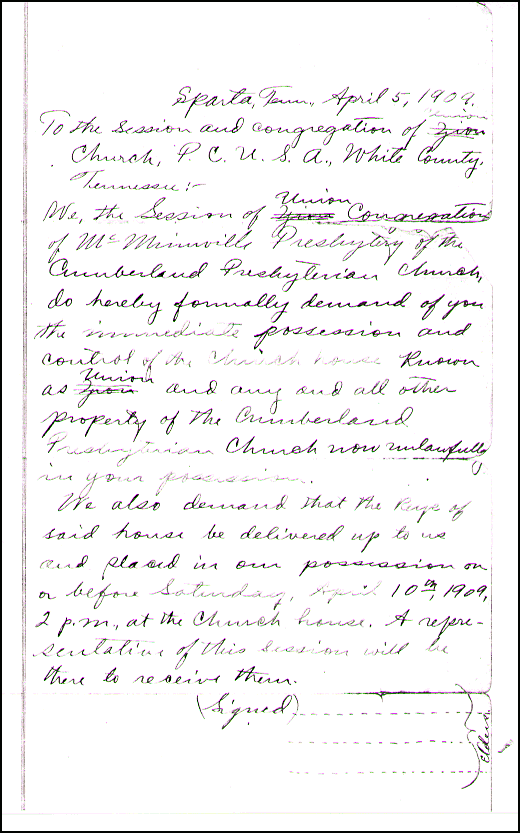 Sparta, Tenn., April 5, 1909.
Union
To the Session and congregation of Zion
Church, P. C. U. S. A., White County,
Tennessee:-
Union
We, the Session of Zion Congregation
of McMinnville Presbytery of the
Cumberland Presbyterian Church,
do hereby formally demand of you
the immediate possession and
control of the Church house known
Union
as Zion and any and all other
property of the Cumberland
Presbyterian Church now unlawfully
in your possession.
We also demand that the keys of
said house be delivered up to us
and placed in our possession on
or before Saturday, April 10th, 1909,
2 p.m., at the Church house. A repre-
sentative of this Session will be
there to receive them.
(Signed)
Elders.